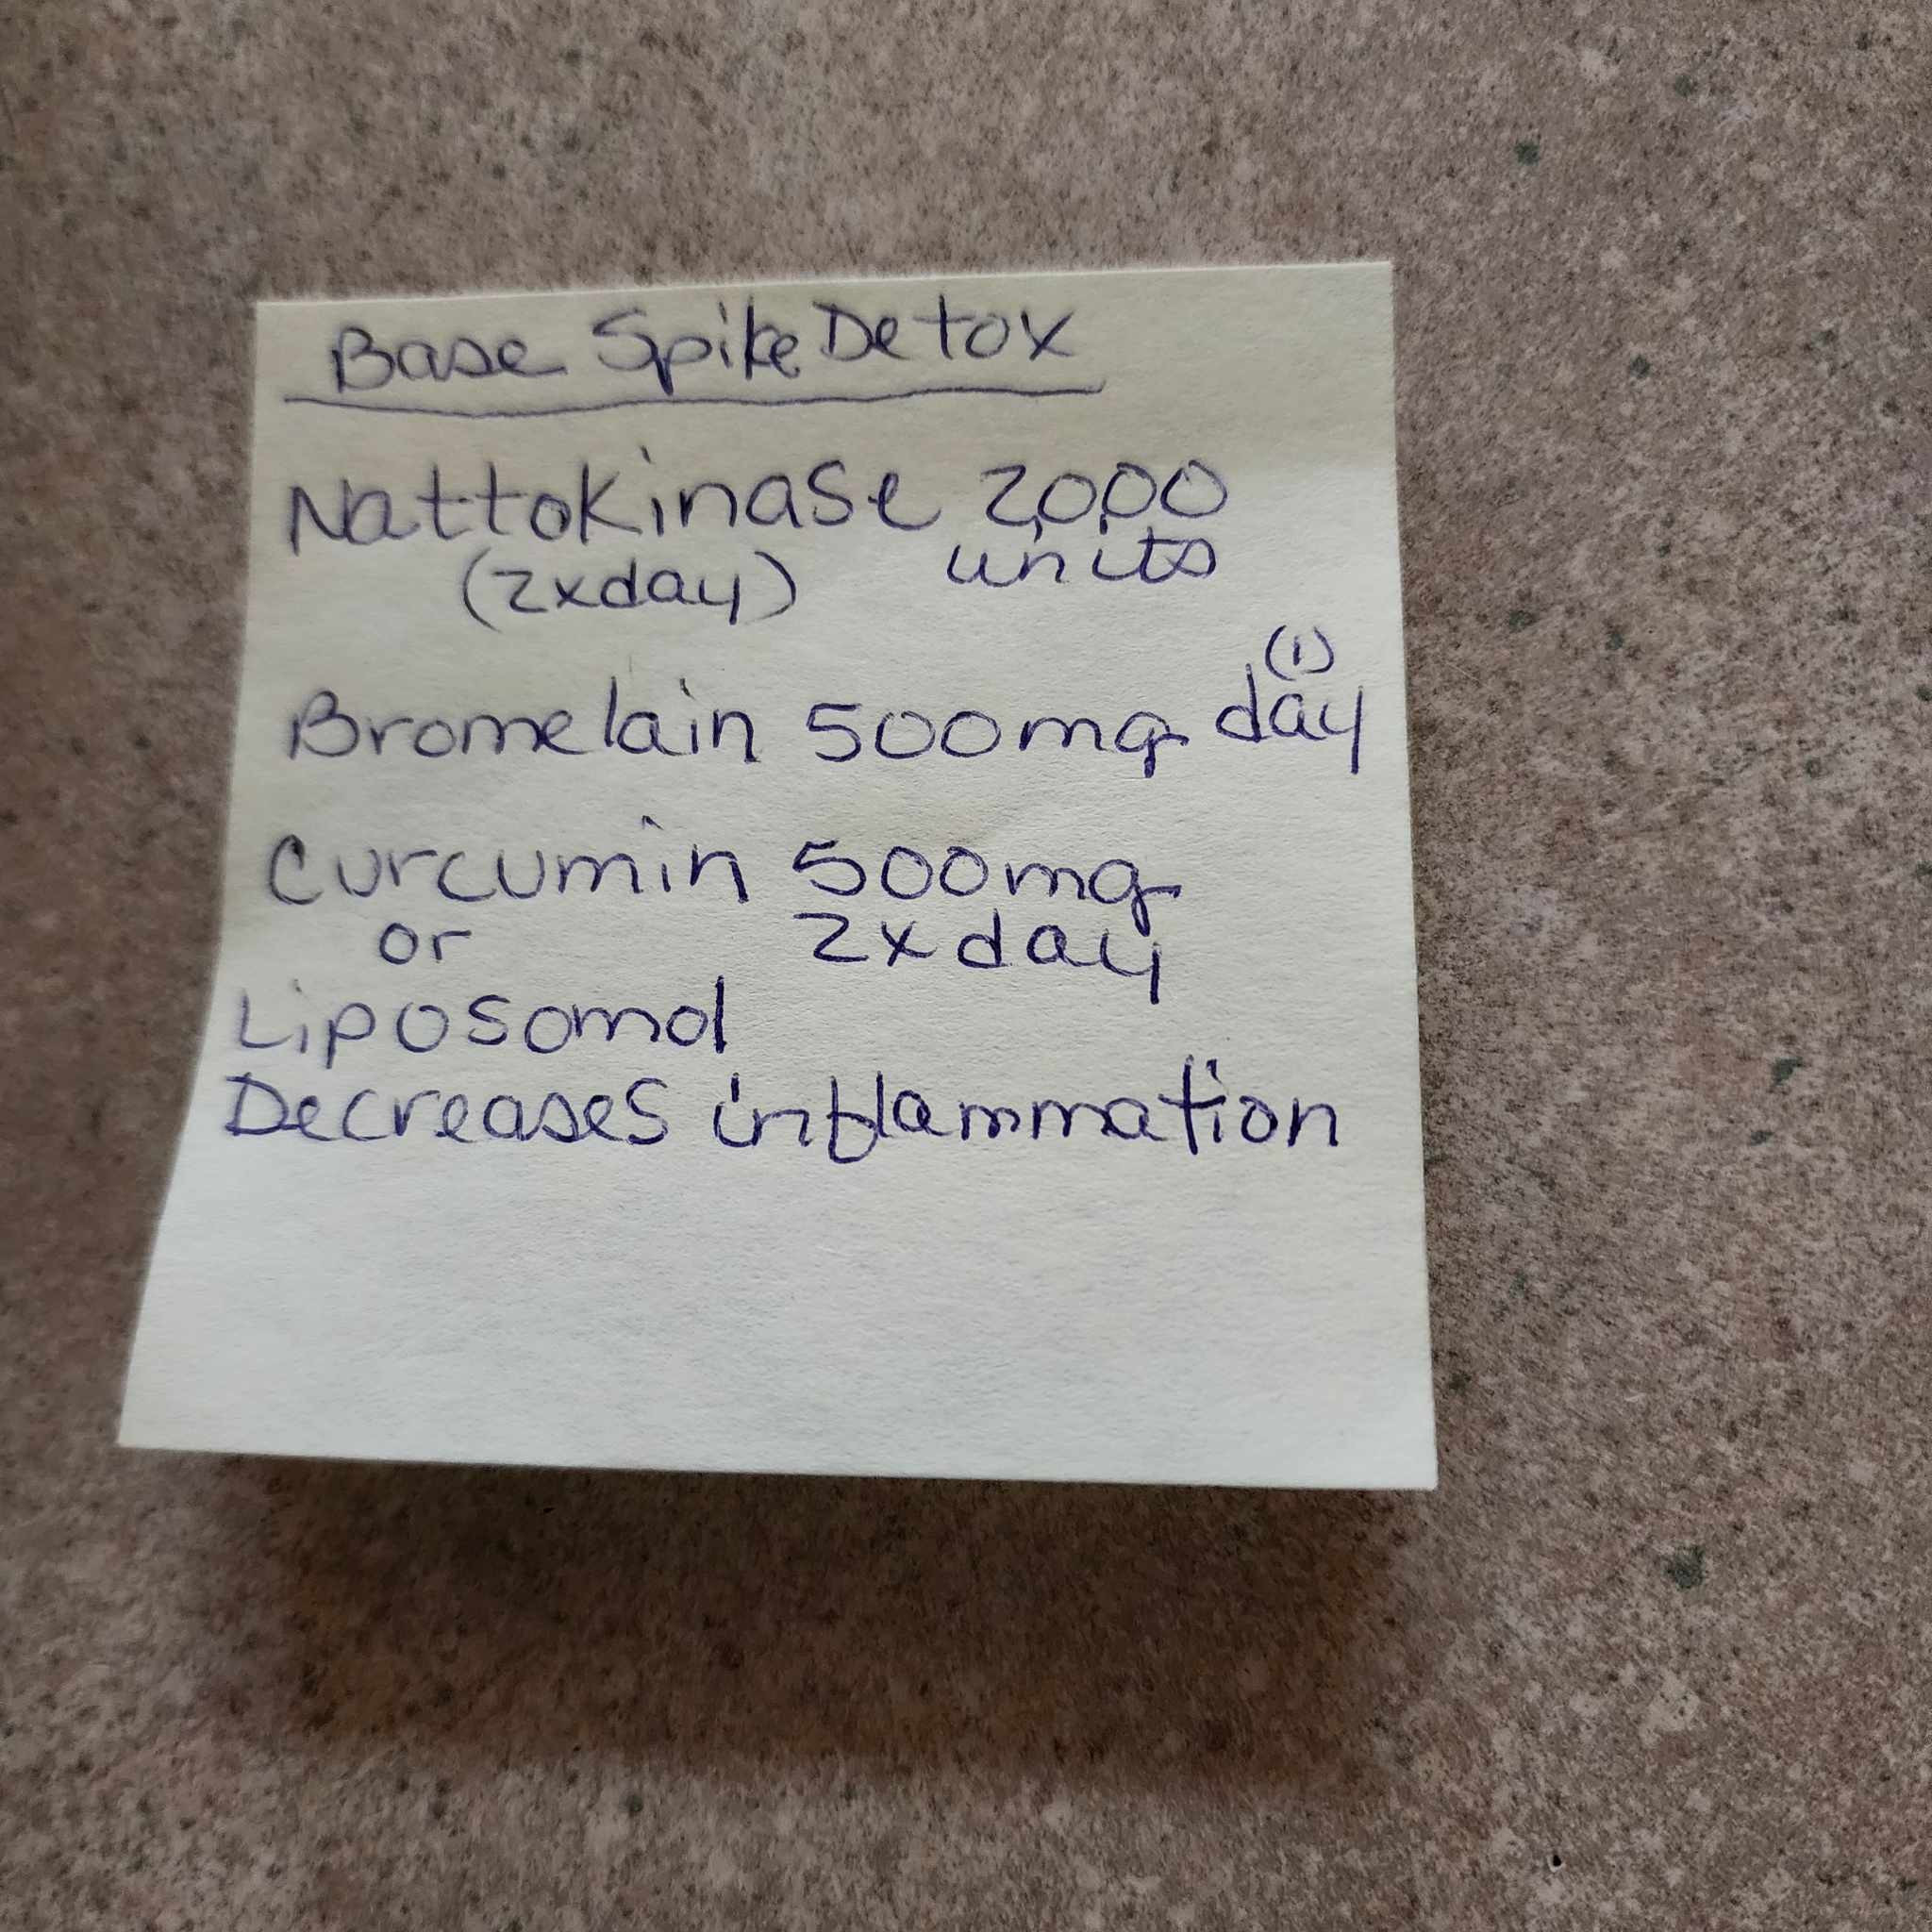 Base Spike Detox
Nattokinase 2,000
(2xday) units
(1)
Bromelain 500mg day
Curcumin 500mg
or 2x day
Liposomol
Decreases inflammation